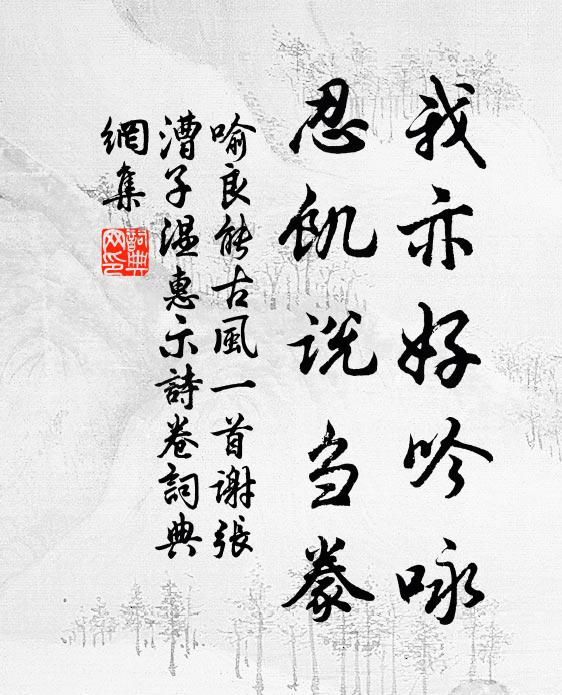 我亦好吟咏
忍飢说刍豢
喻良能古風一首谢張
漕子温惠示詩卷詞典
網集
詞典
网印